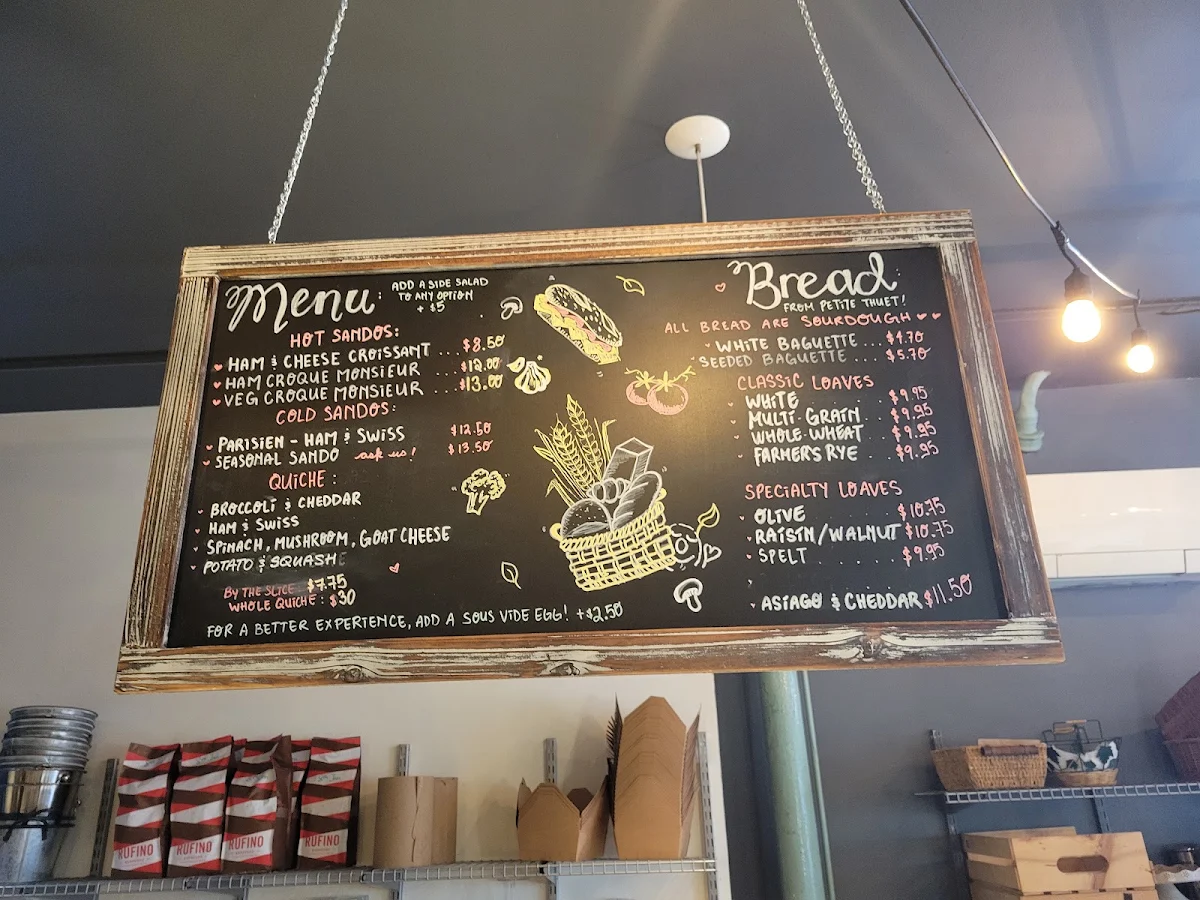 Menu:
ADD A SIDE SALAD
TO ANY OPTION
+ $5
HOT SANDOS:
HAM & CHEESE CROISSANT ... $8.50
HAM CROQUE MONSIEUR ... $12.00
VEG CROQUE MONSIEUR ... $13.00
COLD SANDOS:
PARISIEN - HAM & SWISS $12.50
SEASONAL SANDO ask us! $13.50
QUICHE:
BROCCOLI & CHEDDAR
HAM & SWISS
SPINACH, MUSHROOM, GOAT CHEESE
POTATO & SQUASH
BY THE SLICE: $7.75
WHOLE QUICHE: $30
FOR A BETTER EXPERIENCE, ADD A SOUS VIDE EGG! +$2.50
Bread:
FROM PETITE THUET!
ALL BREAD ARE SOURDOUGH
WHITE BAGUETTE ... $4.70
SEEDED BAGUETTE ... $5.70
CLASSIC LOAVES
WHITE ... $9.95
MULTI-GRAIN ... $9.95
WHOLE WHEAT ... $9.95
FARMER'S RYE ... $9.95
SPECIALTY LOAVES
OLIVE $10.75
RAISIN/WALNUT $10.75
SPELT ..... $9.95
ASIAGO & CHEDDAR $11.50
RUFINO
RUFINO
RUFINO
RUFINO